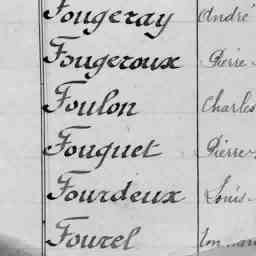 Fougeray André
Fougeroux Pierre
Foulon Charles
Fouquet Pierre
Fourdeux Louis
Fourel